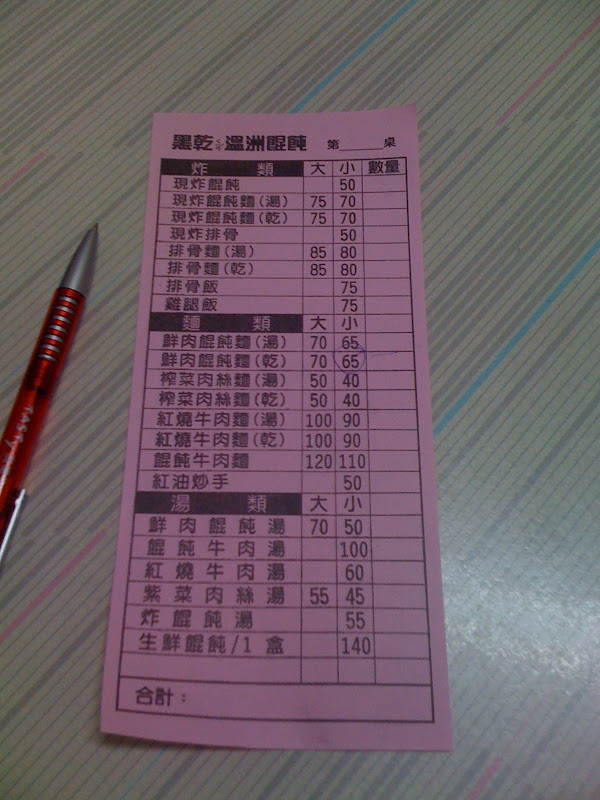 黑乾溫洲餛飩 第____桌
炸 類 大 小 數量
現炸餛飩 50
現炸餛飩麵(湯) 75 70
現炸餛飩麵(乾) 75 70
現炸排骨 50
排骨麵(湯) 85 80
排骨麵(乾) 85 80
排骨飯 75
雞腿飯 75
麵 類 大 小
鮮肉餛飩麵(湯) 70 65
鮮肉餛飩麵(乾) 70 65
榨菜肉絲麵(湯) 50 40
榨菜肉絲麵(乾) 50 40
紅燒牛肉麵(湯) 100 90
紅燒牛肉麵(乾) 100 90
餛飩牛肉麵 120 110
紅油炒手 50
湯 類 大 小
鮮肉餛飩湯 70 50
餛飩牛肉湯 100
紅燒牛肉湯 60
紫菜肉絲湯 55 45
炸餛飩湯 55
生鮮餛飩/1盒 140
合計：
TASTY